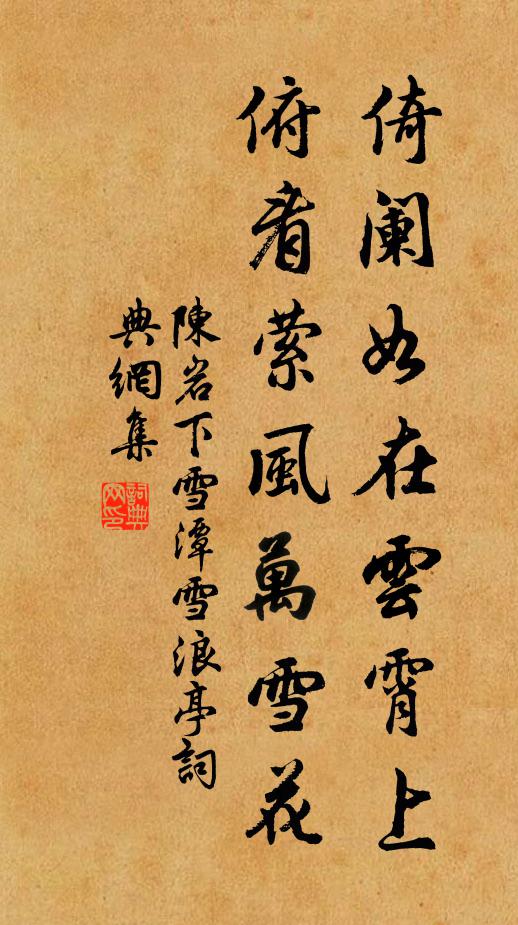 倚阑如在雲霄上
俯看萦風萬雪花
陳岩下雪潭雪浪亭詞
典網集
詞典
网印